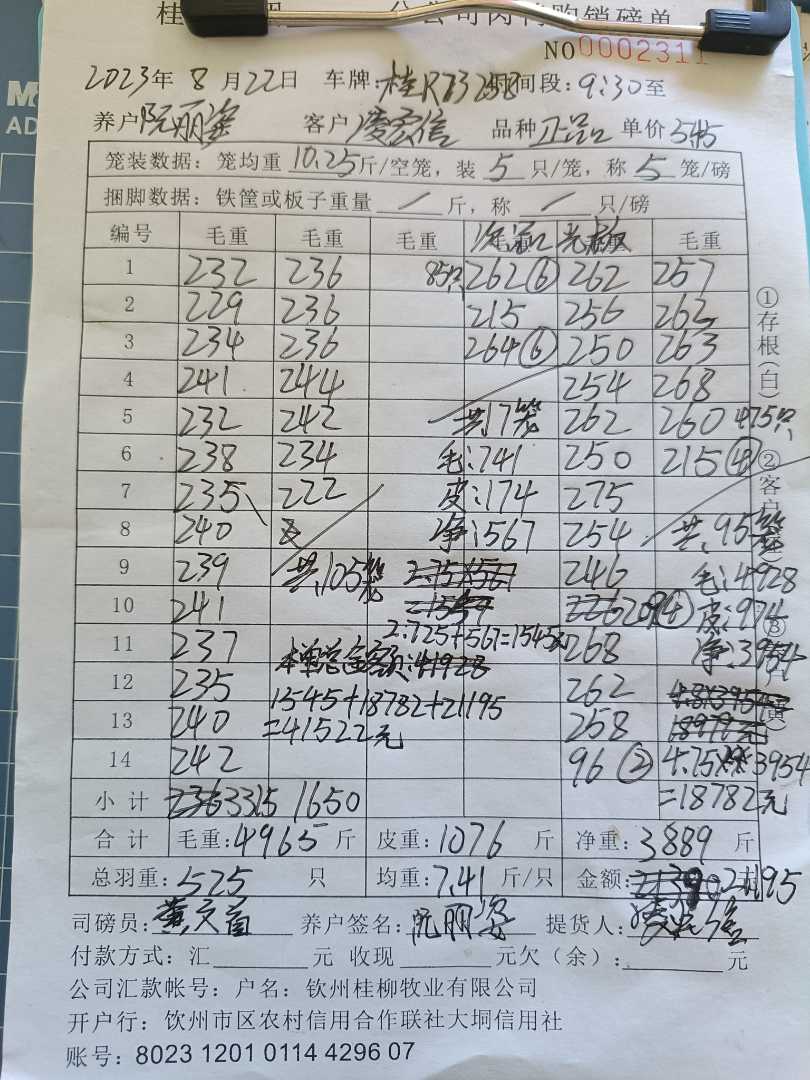 分公司肉鸭购销磅单
NO0002311
2023年 8 月 22日 车牌:桂R73258 时间段:9:30至
养户 阮丽姿 客户 凌宏信 品种 正品 单价 5.45
笼装数据: 笼均重 10.25 斤/空笼, 装 5 只/笼, 称 5 笼/磅
捆脚数据: 铁筐或板子重量 / 斤, 称 / 只/磅
编号 毛重 毛重 毛重 次品 光板 毛重
1 232 236 85只 262⑥ 262 257
2 229 236 215 256 262
3 234 236 264⑥ 250 263
4 241 244 254 268
5 232 242 共17笼 262 260 475只
6 238 234 毛:741 250 215④
7 235 222 皮:174 275
8 240 净:567 254 共95笼
9 239 共105笼 2.75×567 246 毛:4928
10 241 209④ 皮:974
11 237 2.725+567=1545元 268 净:3954
本单总金额:41928
12 235 262 4.8×3954
1545+18782+21195
13 240 =41522元 258 18979元
14 242 96② 4.75×3954
小计 3315 1650 =18782元
合计 毛重:4965 斤 皮重:1076 斤 净重:3889 斤
总羽重:525 只 均重:7.41 斤/只 金额: 21195
司磅员: 养户签名: 阮丽姿 提货人: 凌宏信
付款方式: 汇 元 收现 元欠(余): 元
公司汇款帐号: 户名: 钦州桂柳牧业有限公司
开户行: 饮州市区农村信用合作联社大垌信用社
账号: 8023 1201 0114 4296 07
①存根(白)
②客户
③